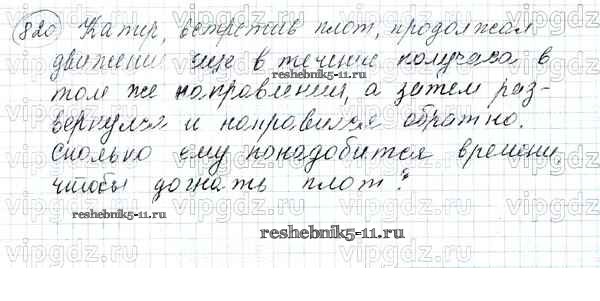 820 Катер, встретив плот, продолжал
движение еще в течение получаса в
том же направлении, а затем раз-
вернулся и направился обратно.
Сколько ему понадобится времени
чтобы догнать плот?
reshebnik5-11.ru
reshebnik5-11.ru
reshebnik5-11.ru